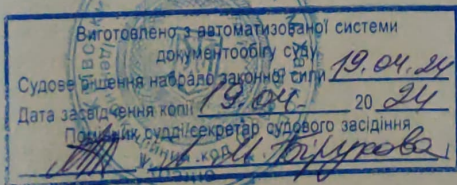 Виготовлено з автоматизованої системи
документообігу суду.
Судове рішення набрало законної сили 19.04.24
Дата засвідчення копії 19.04 20 24
Помічник судді/секретар судового засідання